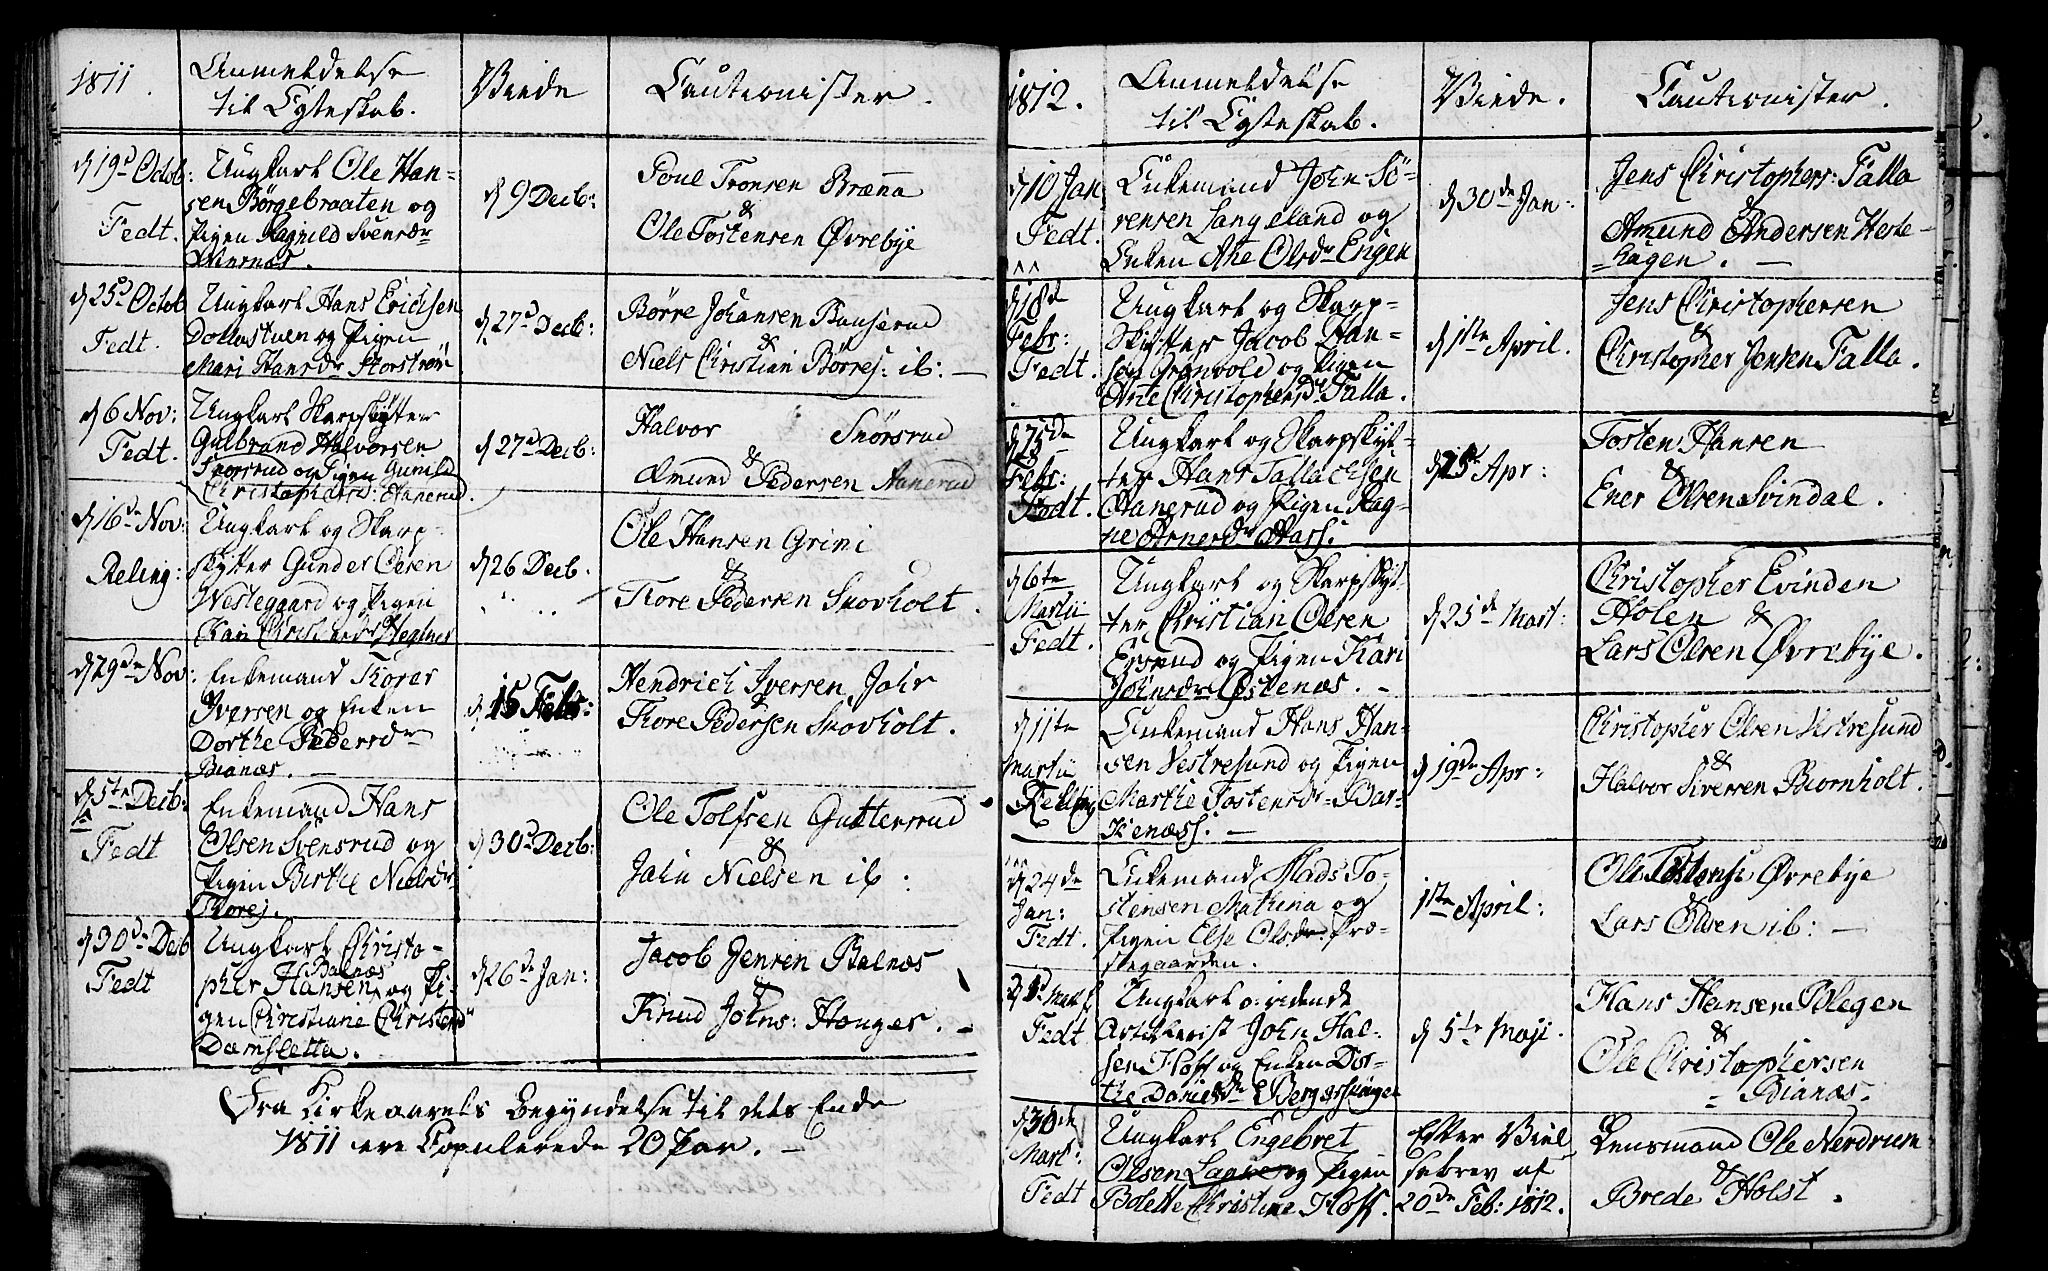 1811.
Anmeldelse
til Egteskab.
Viede
Cautionister.
d 19d Octob:
Fedt.
Ungkarl Ole Han-
sen Børgebraaten og
Pigen Ragnild Svensdr
d 9 Decb:
Poul Tronsen Brænna
&
Ole Tostensen Øvrebye
d 25d Octob
Fedt.
Ungkarl Hans Erichsen
Dollastuen og Pigen
Mari Hansdr Storstrøm
d 27d Decb:
Børre Johansen Bauserud
&
Niels Christian Børres: ib: —
d 6 Nov:
Fedt.
Ungkarl Skarpskytter
Gulbrand Halvorsen
Snorsrud og Pigen Gunild
Christophersd: Hanerud.
d 27d Decb:
Halvor Snorsrud
&
Amund Pedersen Aanerud
d 16de Nov:
Reling:
Ungkarl og Skarp-
skytter Gunder Olsen
Westegaard og Pigen
Kari
d 26 Decb.
Ole Hansen Grini
&
Thore Pedersen Snovholt.
d 29de Nov:
Enkemand Thores
Iversen og Enken
Dorthe Pedersdr
Bianæs. —
d 15 Febr:
Hendrich Iversen Jahr
&
Thore Pedersen Snovholt.
d 5te Decb:
Fedt
Enkemand Hans
Olsen Svensrud og
Pigen Birthe Nielsdr
Thorej.
d 30d Decb:
Ole Tolfsen Guttersrud
&
John Nielsen ib:
d 30d Decb
Fedt
Ungkarl Christo-
Balnæs
pher Hansen og Pi-
gen Christiane Christensd
Damsletta.
d 26de Jan:
Jacob Jensen Balnæs
&
Knud Johns: Hauger. —
Fra Kirkeaarets Begyndelse til dets Ende
1811 ere Copulerede 20 Par. —
1812.
Anmeldelse
til Egteskab.
Viede.
Cautionister.
d 10 Jan
Fedt.
Enkemand John Sö-
rensen Langeland og
Enken Ane Olsdr Engen
d 30de Jan:
Jens Christophers: Falla
&
Amund Andersen Heste-
=hagen. —
d 18de
Febr:
Fedt.
Ungkarl og Skarp-
Skytter Jacob Han-
sen Grønvold og Pigen
Ane Christophersdr Falla.
d 1ste April.
Jens Christophersen
&
Christopher Jensen Falla.
d 25de
Febr:
Fedt.
Ungkarl og Skarpskyt-
ter Hans Tallachsen
Hanerud og Pigen Rag-
ne Arnesdr
d 25 Apr:
Tosten Hansen
&
Ener Olsen Svindal.
d 6te
Martii
Fedt.
Ungkarl og Skarpskyt-
ter Christian Olsen
Ersrud og Pigen Kari
Johnsdr Østenæs. —
d 25de Mart:
Christopher Evinden
Holen &
Lars Olsen Øvrebye.
d 11te
Martii
Reling
Enkemand Hans Han-
sen Vestresund og Pigen
Marthe Tostensdr Bar-
kenæss: —
d 19de Apr:
Christopher Olsen Vestresund
&
Halvor Siversen Biornholt.
d 24de
Jan:
Fedt.
Enkemand Mads To-
stensen Mathina og
Pigen Else Olsdr Præ-
stegaarden.
1ste April:
Ole Tostens: Øvrebye
&
Lars Olsen ib: —
Fedt
Ungkarl o: ridende
Artillerist John Hal-
sen Hoff og Enken Dor-
the Danielsdr Bergerskougen
d 5te Maji.
Hans Hansen Blegen
&
Ole Christophersen
= Bianæs =
d 30de
Mart:
Fedt
Ungkarl Engebret
Olsen og Pigen
Bolette Christine Hoff.
Efter Viel
sebrev af
20de Feb: 1812.
Lensmand Ole Nerdrum
&
Brede Holst.